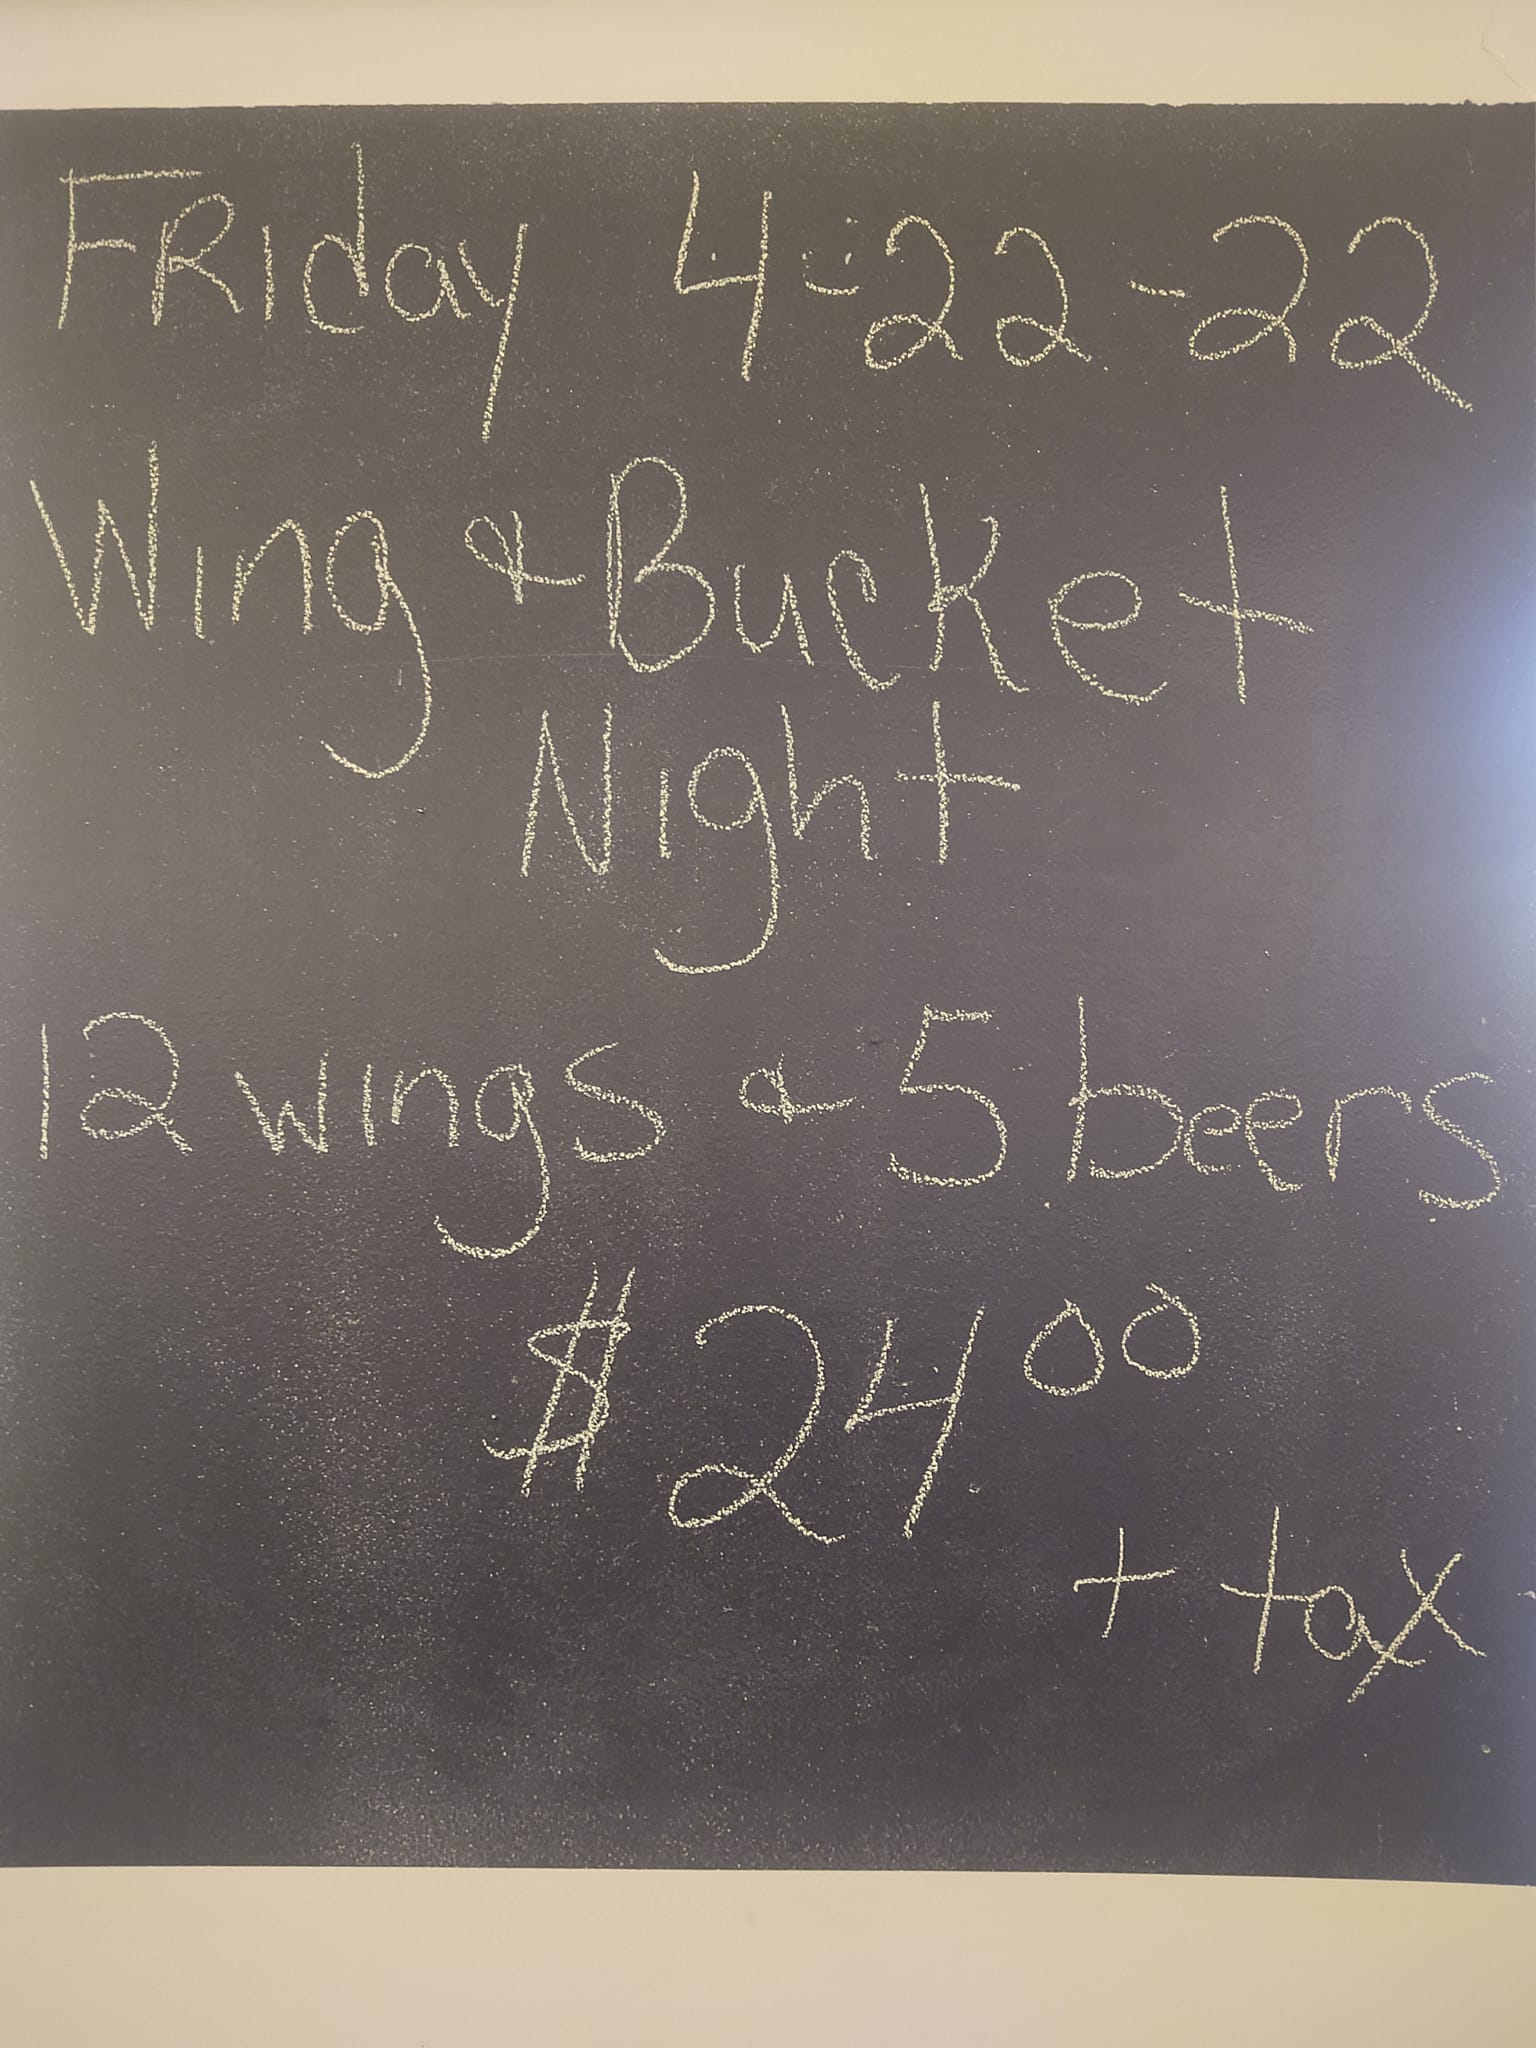 FRiday 4-22-22
Wing & Bucket
Night
12 wings & 5 beers
$24.00
+ tax